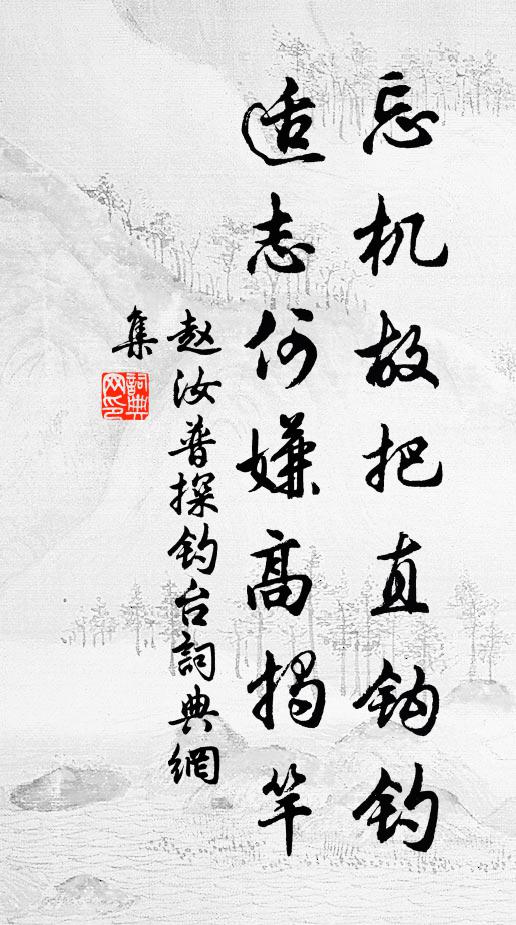 忘机故把直钩钓
适志何嫌高揭竿
赵汝普探钓台詞典網
集
詞典
网印